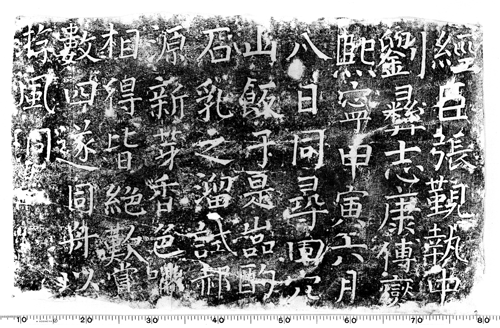 經臣張覲執中
劉彝志康傅燮
熙寧甲寅六月
八日同尋圓穴
山飯于是嵓酌
石乳之溜試郝
源新芽香色味
相得皆絕歎賞
數四遂同以
風洞
10 20 30 40 50 60 70 80